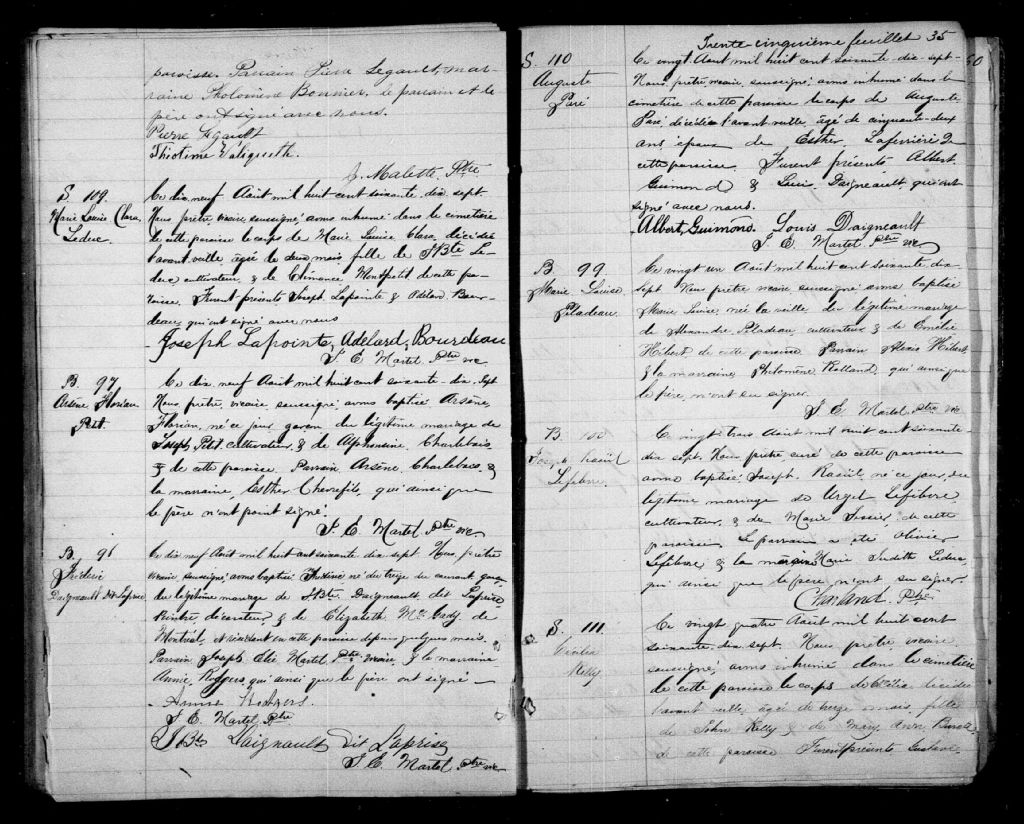 paroisse. Parrain Pierre Legault, mar-
raine Philomène Bonnier, le parrain et le
père ont signé avec nous.
Pierre Legault
Théotime Valiquette.
J. Malette Ptre
S. 109.
Marie Louise Clara
Leduc
Ce dix neuf Août mil huit cent soixante dix sept
Nous prêtre vicaire soussigné avons inhumé dans le cimetière
de cette paroisse le corps de Marie Louise Clara, décédée
l'avant veille, âgée de deux mois, fille de J.Bte Le-
duc cultivateur, & de Clémence Montpetit de cette pa-
roisse. Furent présents Joseph Lapointe & Adélard Bour-
deau, qui ont signé avec nous
Joseph Lapointe, Adelard, Bourdeau
J. E. Martel Ptre vic
B. 97
Arsène Florian
Petit.
Ce dix neuf Août mil huit cent soixante-dix-sept
Nous, prêtre, vicaire, soussigné, avons baptisé Arsène,
Florian, né ce jour garçon du légitime mariage de
Joseph Petit cultivateur, & de Alphonsine Charlebois
& de cette paroisse. Parrain Arsène, Charlebois, &
la marraine, Esther Chevrefils, qui ainsi que
le père n'ont point signé.
J. E. Martel Ptre vic
B. 98
Frédéric
Daignault Dit Laprise
Ce dix neuf Août mil huit cent soixante dix sept Nous, prêtre
vicaire, soussigné, avons baptisé Frédéric né du treize du courant garçon
du légitime mariage de J.Bte Daigneault, dit Laprise
Peintre, décorateur, & de Elizabeth Mc Cady, de
Montréal, et résidant en cette paroisse depuis quelques mois.
Parrain Joseph Elie Martel Ptre, vicaire, & la marraine
Annie Rodgers qui ainsi que le père ont signé
Annie Rodgers.
J. E. Martel Ptre
J.Bte Daignault Dit Laprise
J. E. Martel Ptre vic
Trente-cinquième feuillet 35
S. 110
Auguste
Paré
Ce vingt Août mil huit cent soixante-dix-sept-
Nous, prêtre, vicaire, soussigné, avons inhumé dans le
cimetière de cette paroisse le corps de Auguste
Paré, décédé l'avant veille, âgé de cinquante-deux
ans époux de Esther Laferrière de
cette paroisse. Furent présents Albert
Guimond & Louis Daigneault, qui ont
signé avec nous.
Albert, Guimond. Louis Daigneault
J. E. Martel Ptre vic
B. 99
Marie Louise
Piladeau.
Ce vingt un Août mil huit cent soixante, dix
sept Nous prêtre vicaire soussigné avons baptisé
Marie Louise, née la veille du légitime mariage
de Alexandre Piladeau, cultivateur & de Emélie
Hébert de cette paroisse Parrain Alexis Hébert
& la marraine, Philomène Rolland, qui ainsi que
le père, n'ont su signer.
J. E. Martel Ptre vic
B. 100
Joseph Raoül
Lefebvre.
Ce vingt trois Août mil huit cent soixante-
dix sept. Nous prêtre curé de cette paroisse
avons baptisé Joseph, Raoül, né ce jour, du
légitime mariage de Urgel Lefebvre
cultivateur, & de Marie de cette
paroisse. Le parrain a été Olivier
Lefebvre & la marraine Marie Judith Leduc
qui ainsi que le père n'ont su signer.
Charland Ptre
S. 111.
Cécilia
Kelly
Ce vingt quatre Août mil huit cent
soixante-dix-sept. Nous prêtre, vicaire
soussigné, avons inhumé dans le cimetière
de cette paroisse le corps de Cécilia décédée
l'avant veille, âgée de treize mois, fille
de John Kelly & de Mary Ann
de cette paroisse Furent présents Gustave